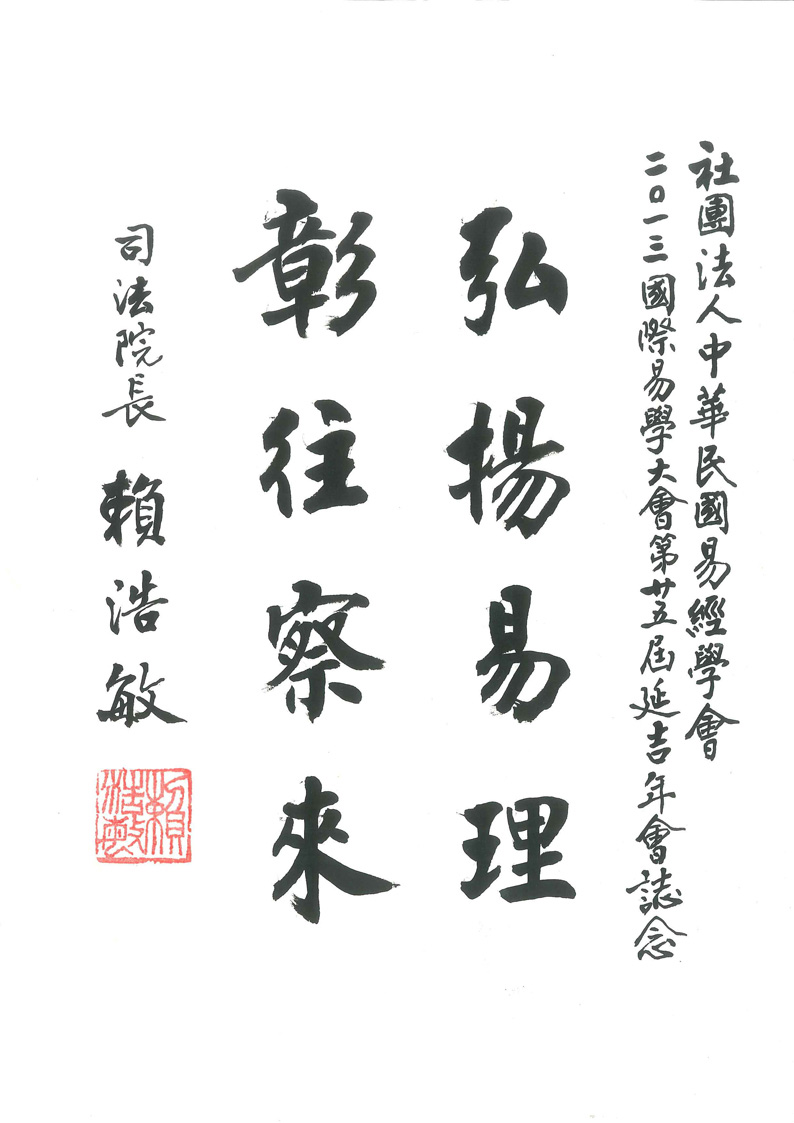 社團法人中華民國易經學會
二０一三國際易學大會第廿五屆延吉年會誌念
弘揚易理
彰往察來
司法院長 賴浩敏
賴浩敏